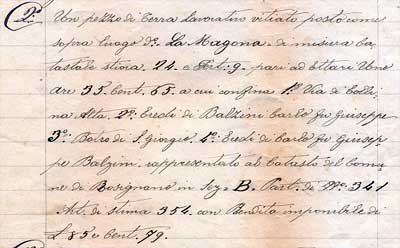 2º
Un pezzo di terra lavorativo vitiato posto come
sopra luogo dº La Magona, di misura ca,
tastale stiora 24 e Pert: 9. pari ad Ettari Uno
Are 35 Cent. 65. a cui confina 1º Via di Colli,
na Alta. 2º: Eredi di Balzini Carlo fu Giuseppe
3º: Botro di S. Giorgio. 4º: Eredi di Carlo fu Giusep,
pe Balzini, rappresentato al Catasto del Comu,
ne di Rosignano in Sez. B. Part: di Nº 341
Art. di stima 354. con Rendita imponibile di
£ 85 e Cent. 79.